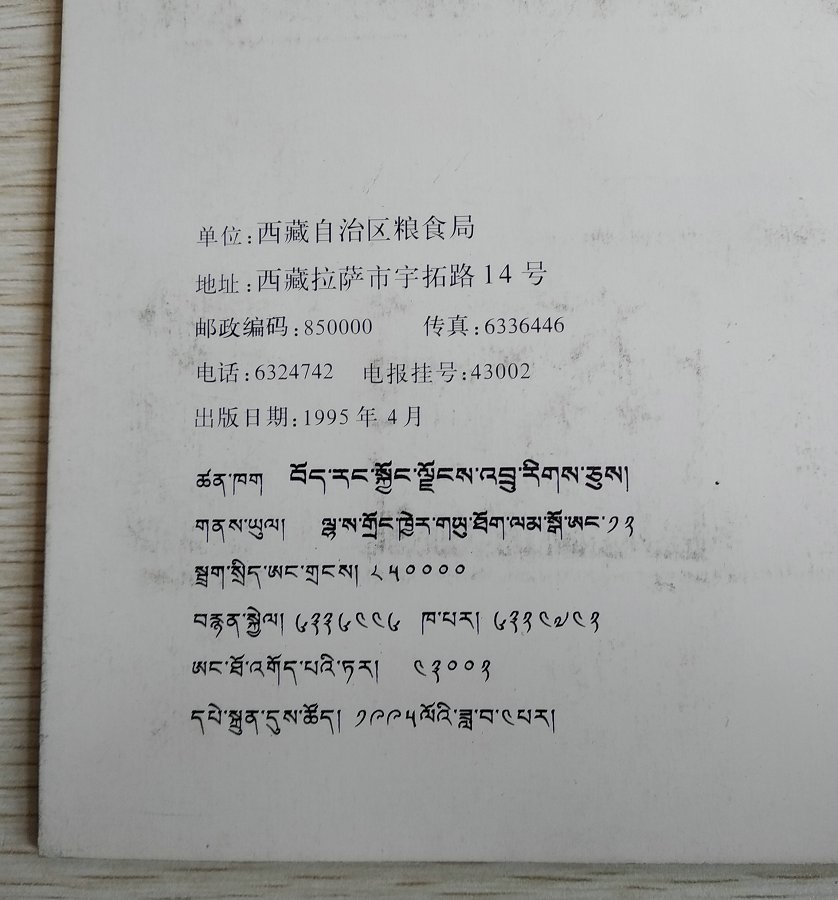 单位:西藏自治区粮食局
地址:西藏拉萨市宇拓路14号
邮政编码:850000 传真:6336446
电话:6324742 电报挂号:43002
出版日期:1995年4月
ཚན་ཁག བོད་རང་སྐྱོང་ལྗོངས་འབྲུ་རིགས་ཅུས།
གནས་ཡུལ། ལྷ་ས་གྲོང་ཁྱེར་གཡུ་ཐོག་ལམ་སྒོ་ཨང་༡༢
སྦྲག་སྲིད་ཨང་གྲངས། ༨༥༠༠༠༠
བརྙན་སྐྱེལ། ༦༣༣༦༤༤༦ ཁ་པར། ༦༣༢༤༧༤༢
ཨང་ཐོ་འགོད་པའི་ཏར། ༤༣༠༠༢
དཔེ་སྐྲུན་དུས་ཚོད། ༡༩༩༥ལོའི་ཟླ་བ་༤པར།